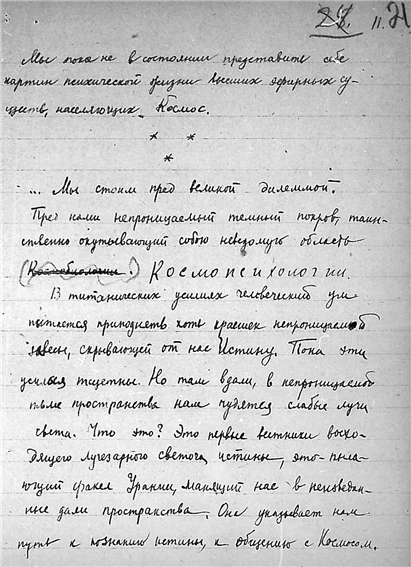 11. 21
Мы пока не в состоянии представить себе
картин психической жизни высших эфирных су-
ществ, населяющих Космос.
* *
*
... Мы стоим пред великой дилеммой.
Пред нами непроницаемый темный покров, таин-
ственно окутывающий собою неведомую область
Космопсихологии.
В титанических усилиях человеческий ум
пытается приподнять хоть краешек непроницаемой
завесы, скрывающей от нас Истину. Пока эти
усилия тщетны. Но там вдали, в непроницаемой
тьме пространства нам чудятся слабые лучи
света. Что это? Это первые вестники восхо-
дящего лучезарного светоча истины, это-пыла-
ющий факел Урании, манящий нас в неизведан-
ные дали пространства. Он указывает нам
путь к познанию истины, к общению с Космосом.